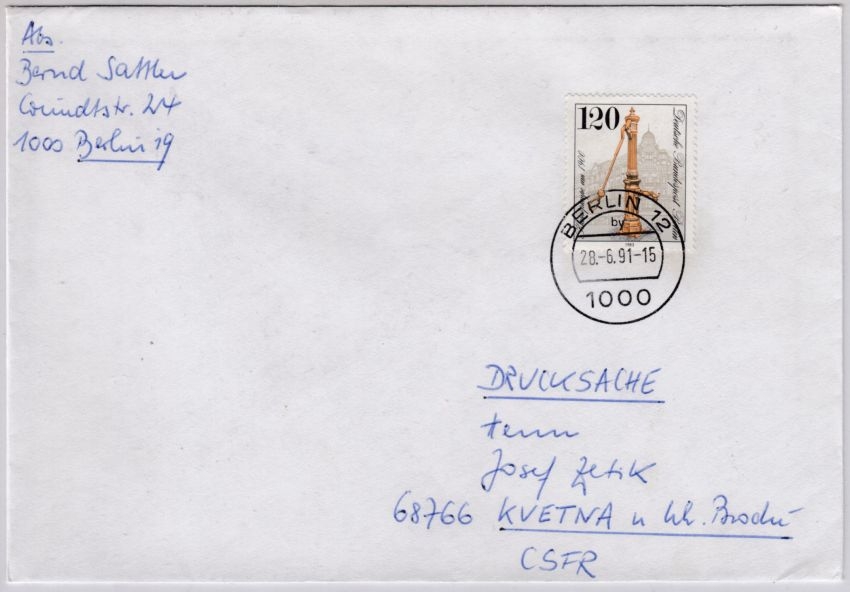 Abs.
Bernd Sattler
Grundtstr. 24
1000 Berlin 19
120
Deutsche Bundespost Berlin
um 1900
BERLIN 12
by
28.-6.91-15
1000
DRUCKSACHE
Herrn
Josef Zetik
68766 KVETNA u Uh. Brodu
CSFR